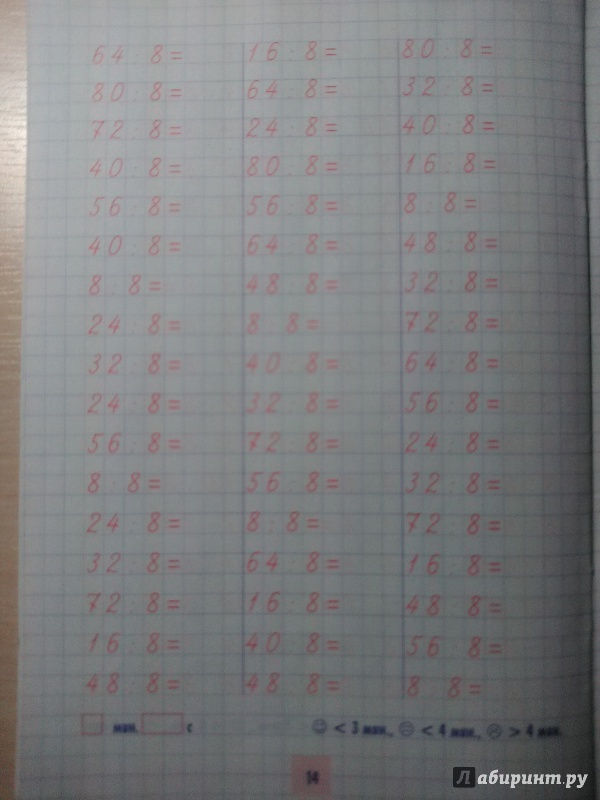 64 : 8 = 16 : 8 = 80 : 8 =
80 : 8 = 64 : 8 = 32 : 8 =
72 : 8 = 24 : 8 = 40 : 8 =
40 : 8 = 80 : 8 = 16 : 8 =
56 : 8 = 56 : 8 = 8 : 8 =
40 : 8 = 64 : 8 = 48 : 8 =
8 : 8 = 48 : 8 = 32 : 8 =
24 : 8 = 8 : 8 = 72 : 8 =
32 : 8 = 40 : 8 = 64 : 8 =
24 : 8 = 32 : 8 = 56 : 8 =
56 : 8 = 72 : 8 = 24 : 8 =
8 : 8 = 56 : 8 = 32 : 8 =
24 : 8 = 8 : 8 = 72 : 8 =
32 : 8 = 64 : 8 = 16 : 8 =
72 : 8 = 16 : 8 = 48 : 8 =
16 : 8 = 40 : 8 = 56 : 8 =
48 : 8 = 48 : 8 = 8 : 8 =
мин. с < 3 мин., < 4 мин., > 4 мин.
14
Лабиринт.ру